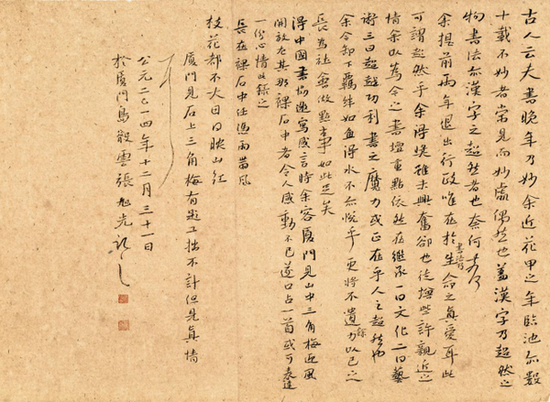 古人云夫書晚年乃妙余近花甲之年臨池尔數
十載不妙者常見而妙處偶然也蓋漢字乃超然之
物書法亦漢字之超然者也奈何
余提前兩年退出行政唯在於書法乃生命之真愛耳此
可謂超然乎余得 未興奮卻也徒增些許親近之
情余以為今之書壇重點依然在繼承一曰文化二曰藝
術三曰超越功利書之魔力或正在乎人之超然也
余今卸下羈絆如魚得水不亦悅乎更將不遺餘力以己之
長為社會做點事如此足矣
得中國書協 寫感言時余客廈門見山中三角梅迎風
開放尤其那 石中者令人感動不已遂口占一首或可表達
一份心情又錄之
長在 石中任憑雨 風
枝花都不大日日映山红
廈門見石上三角梅有題工拙不計但 真情
公元二〇一四年十二月三十一日
於廈門 雲張旭光記之